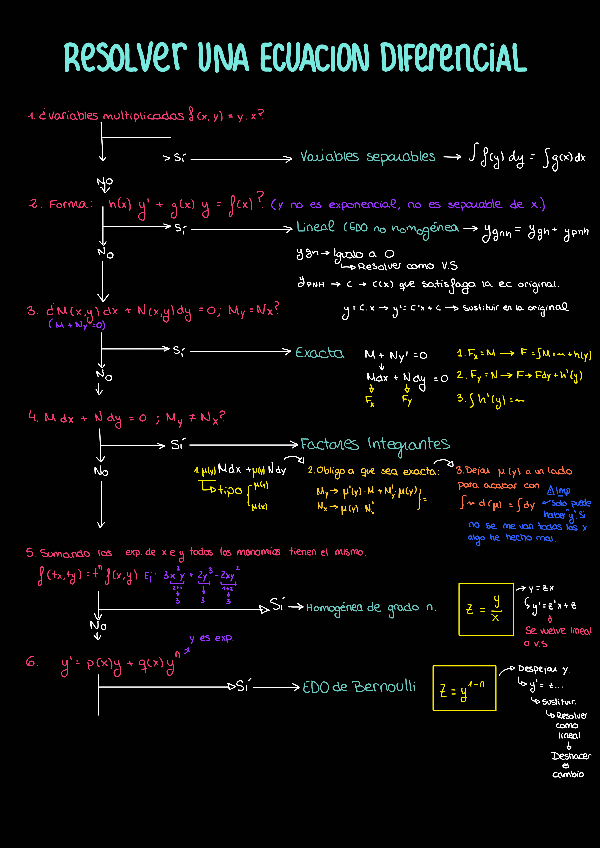 RESOLVER UNA ECUACION DIFERENCIAL
1. ¿Variables multiplicadas f(x,y) = y.x?
Sí → Variables separables → ∫f(y)dy = ∫g(x)dx
No
2. Forma: h(x) y' + g(x) y = f(x)? (y no es exponencial, no es separable de x.)
Sí → Lineal (EDO no homogénea → ygnh = ygh + ypnh
No
ygh → Igualo a 0
↳ Resolver como V.S
yPNH → C → C(x) que satisfaga la ec original.
y = C.x → y' = C'x + C → sustituir en la original
3. ¿M(x,y)dx + N(x,y)dy = 0; My = Nx?
(M + Ny' = 0)
Sí → Exacta
No
M + Ny' = 0
↓
Mdx + Ndy = 0
Fx Fy
1. Fx = M → F = ∫M dx + h(y)
2. Fy = N → F → Fdy + h'(y)
3. ∫h'(y) = ~
4. Mdx + Ndy = 0 ; My ≠ Nx?
Sí → Factores Integrantes
No
1. μ(y) Mdx + μ(y) Ndy
↳ tipo { μ(y)
μ(x)
2. Obligo a que sea exacta:
My → μ'(y)·M + M'y·μ(y) } =
Nx → μ(y) N'x
3. Dejar μ(y) a un lado
para acabar con
∫~ d(μ) = ∫dy
⚠Imp
→ Solo puede
haber "y". Si
no se me van todas las x
algo he hecho mal.
5. Sumando los exp. de x e y todos los monomios tienen el mismo.
f(tx,ty) = tⁿ f(x,y) Ej: 3x²y + 2y³ - 2xy²
2+1 3 1+2
3 3 3
Sí → Homogénea de grado n.
No
z = y/x
→ y = zx
↳ y' = z'x + z
↓
Se vuelve lineal
o v.s
y es exp.
6. y' = p(x)y + q(x)yⁿ
Sí → EDO de Bernoulli
z = y¹⁻ⁿ
→ Despejar y
↳ y' = z...
↳ Sustituir.
↳ Resolver
como
lineal
↓
Deshacer
el
cambio